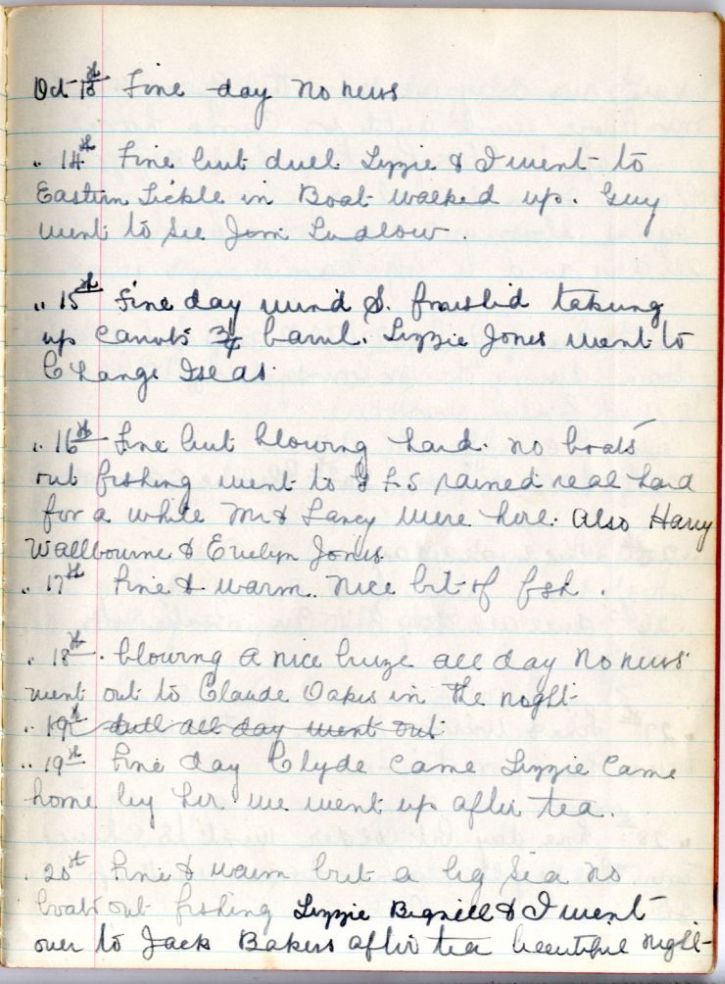 Oct 13th Fine day no news
" 14th Fine but dull Lizzie & I went to
Eastern Tickle in Boat walked up. Guy
went to see Jim Ludlow.
" 15th Fine day wind S. finished taking
up carrots 3/4 barrel. Lizzie Jones went to
Change Islds.
" 16th Fine but blowing hard. no boats
out fishing went to rained real hard
for a while Mr & Lancy were here. Also Harry
Wellbourne & Evelyn Jones
" 17th Fine & warm. Nice bit of fish.
" 18th. blowing a nice breeze all day No news
went out to Claude Oakes in the night
" 19th dull all day went out
" 19th Fine day Clyde came Lizzie came
home by her we went up after tea.
" 20th Fine & warm but a big sea no
boats out fishing Lizzie Bignell & I went
over to Jack Bakers after tea beautiful night